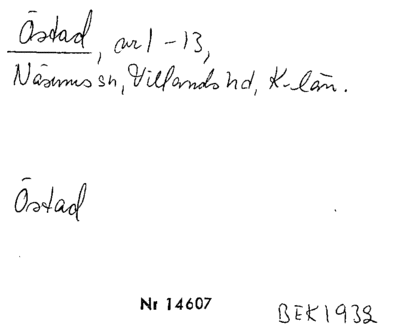 Östad, nr 1-13,
Näsums sn, Villands hd, K-län.
Östad
Nr 14607
BEK 1932